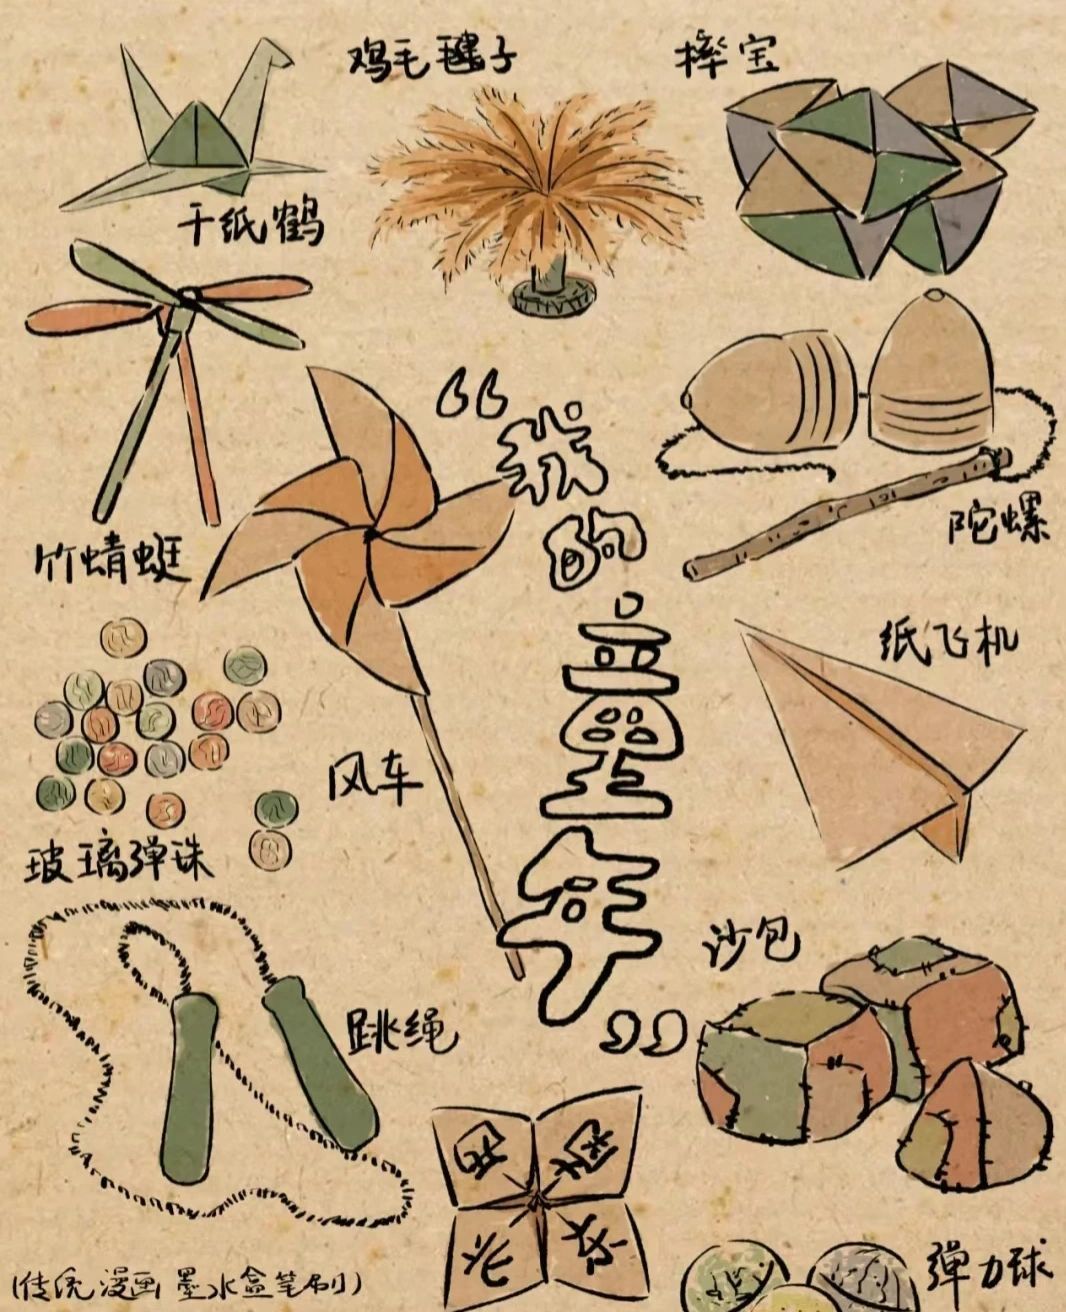 鸡毛毽子
摔宝
千纸鹤
竹蜻蜓
“我的童年”
陀螺
纸飞机
风车
玻璃弹珠
沙包
跳绳
西
北
弹力球
(传统漫画 墨水盒笔刷)